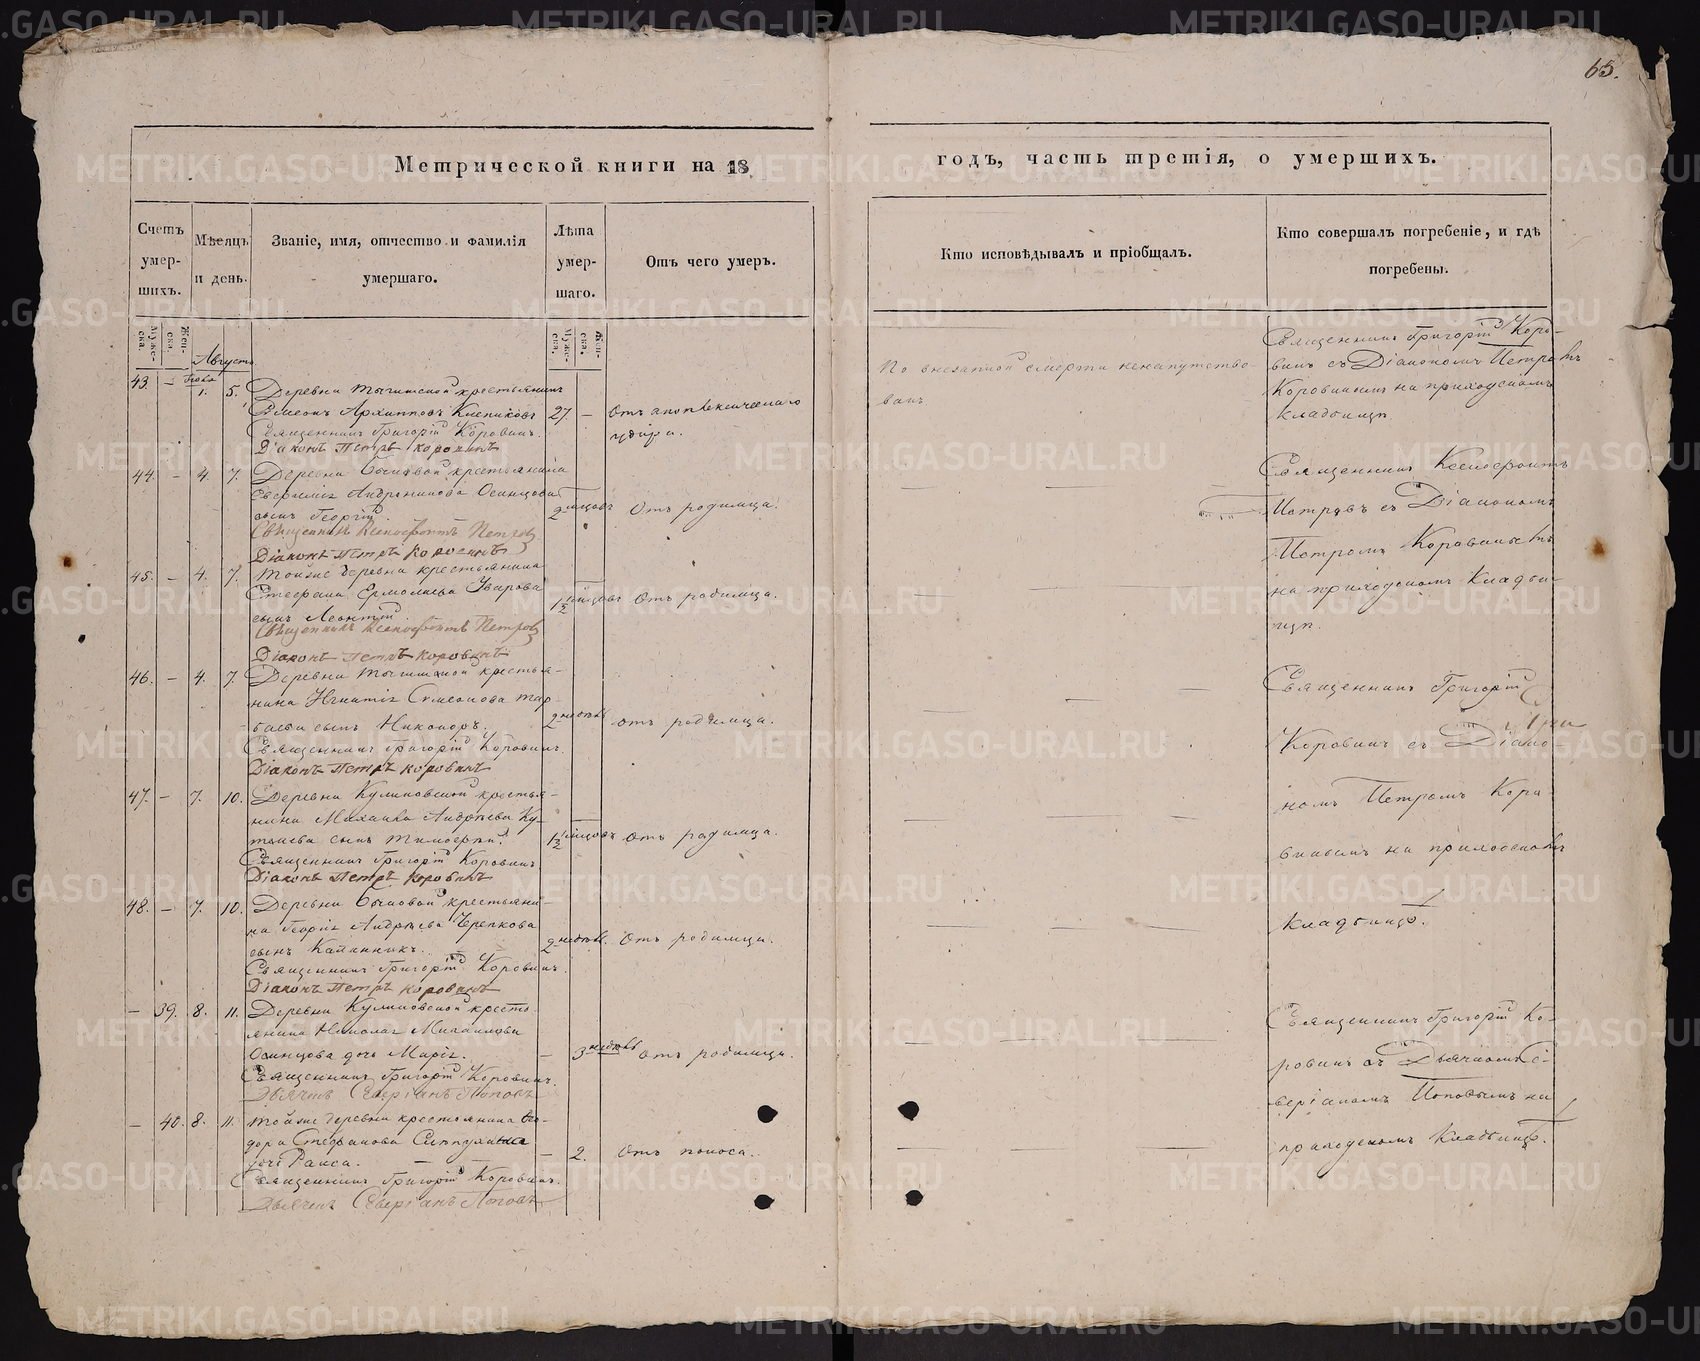 65.
Метрической книги на 18
годъ, часть третія, о умершихъ.
Счетъ умер-шихъ.
Мѣсяцъ и день.
Званіе, имя, отчество и фамилія умершаго.
Лѣта умер-шаго.
Отъ чего умеръ.
Кто исповѣдывалъ и пріобщалъ.
Кто совершалъ погребеніе, и гдѣ погребены.
Муже-ска.
Жен-ска.
Муже-ска.
Жен-ска.
Августа
43. — 1. 5. Деревни крестьянинъ
Симеонъ Архиповъ Клепиковъ 27. — Отъ апоплексическаго
Священникъ Григорій Коровинъ. удара.
Діаконъ Петръ Коровинъ
По внезапной смерти ненапутство-
ванъ
Священникъ Григорій Коро-
винъ съ Діакономъ Петромъ
Коровинымъ на приходскомъ
кладбищѣ.
44. — 4. 7. Деревни крестьянина
Андроникова Осинцова
сынъ Георгій. 2 мѣсцовъ Отъ родимца.
Священникъ Ксенофонтъ Петровъ
Діаконъ Петръ Коровинъ
Священникъ Ксенофонтъ
Петровъ съ Діакономъ
Петромъ Коровинымъ
на приходскомъ кладби-
щѣ.
45. — 4. 7. Тойже деревни крестьянина
Стефана Ермолаева Уварова
сынъ Леонтій. 1½ мѣсцовъ Отъ родимца.
Священникъ Ксенофонтъ Петровъ
Діаконъ Петръ Коровинъ
46. — 4. 7. Деревни крестья-
нина Игнатія Симеонова
сынъ Никаноръ. 2 недѣль отъ родимца.
Священникъ Григорій Коровинъ.
Діаконъ Петръ Коровинъ
Священникъ Григорій
Коровинъ съ Діако-
номъ Петромъ Коро-
винымъ на приходскомъ
кладбищѣ.
47. — 7. 10. Деревни Куликовской крестья-
нина Михаила Андреева Ку-
сынъ Тимофей. 1½ мѣсцовъ Отъ родимца.
Священникъ Григорій Коровинъ
Діаконъ Петръ Коровинъ
48. — 7. 10. Деревни крестьяни-
на Георгія Андреева Черепкова
сынъ Каллиникъ. 2 недѣль. Отъ родимца.
Священникъ Григорій Коровинъ.
Діаконъ Петръ Коровинъ
— 39. 8. 11. Деревни Куликовской кресть-
янина Николая Михаилова
Осинцова дочь Марія. — 3 недѣль Отъ родимца.
Священникъ Григорій Коровинъ.
Дьячекъ Северіанъ Поповъ
Священникъ Григорій Ко-
ровинъ съ Дьячкомъ Се-
веріаномъ Поповымъ на
приходскомъ кладбищѣ.
— 40. 8. 11. Тойже деревни крестьянина Ѳео-
дора Стефанова
дочь Раиса. — 2. Отъ поноса.
Священникъ Григорій Коровинъ.
Дьячекъ Северіанъ Поповъ
METRIKI.GASO-URAL.RU